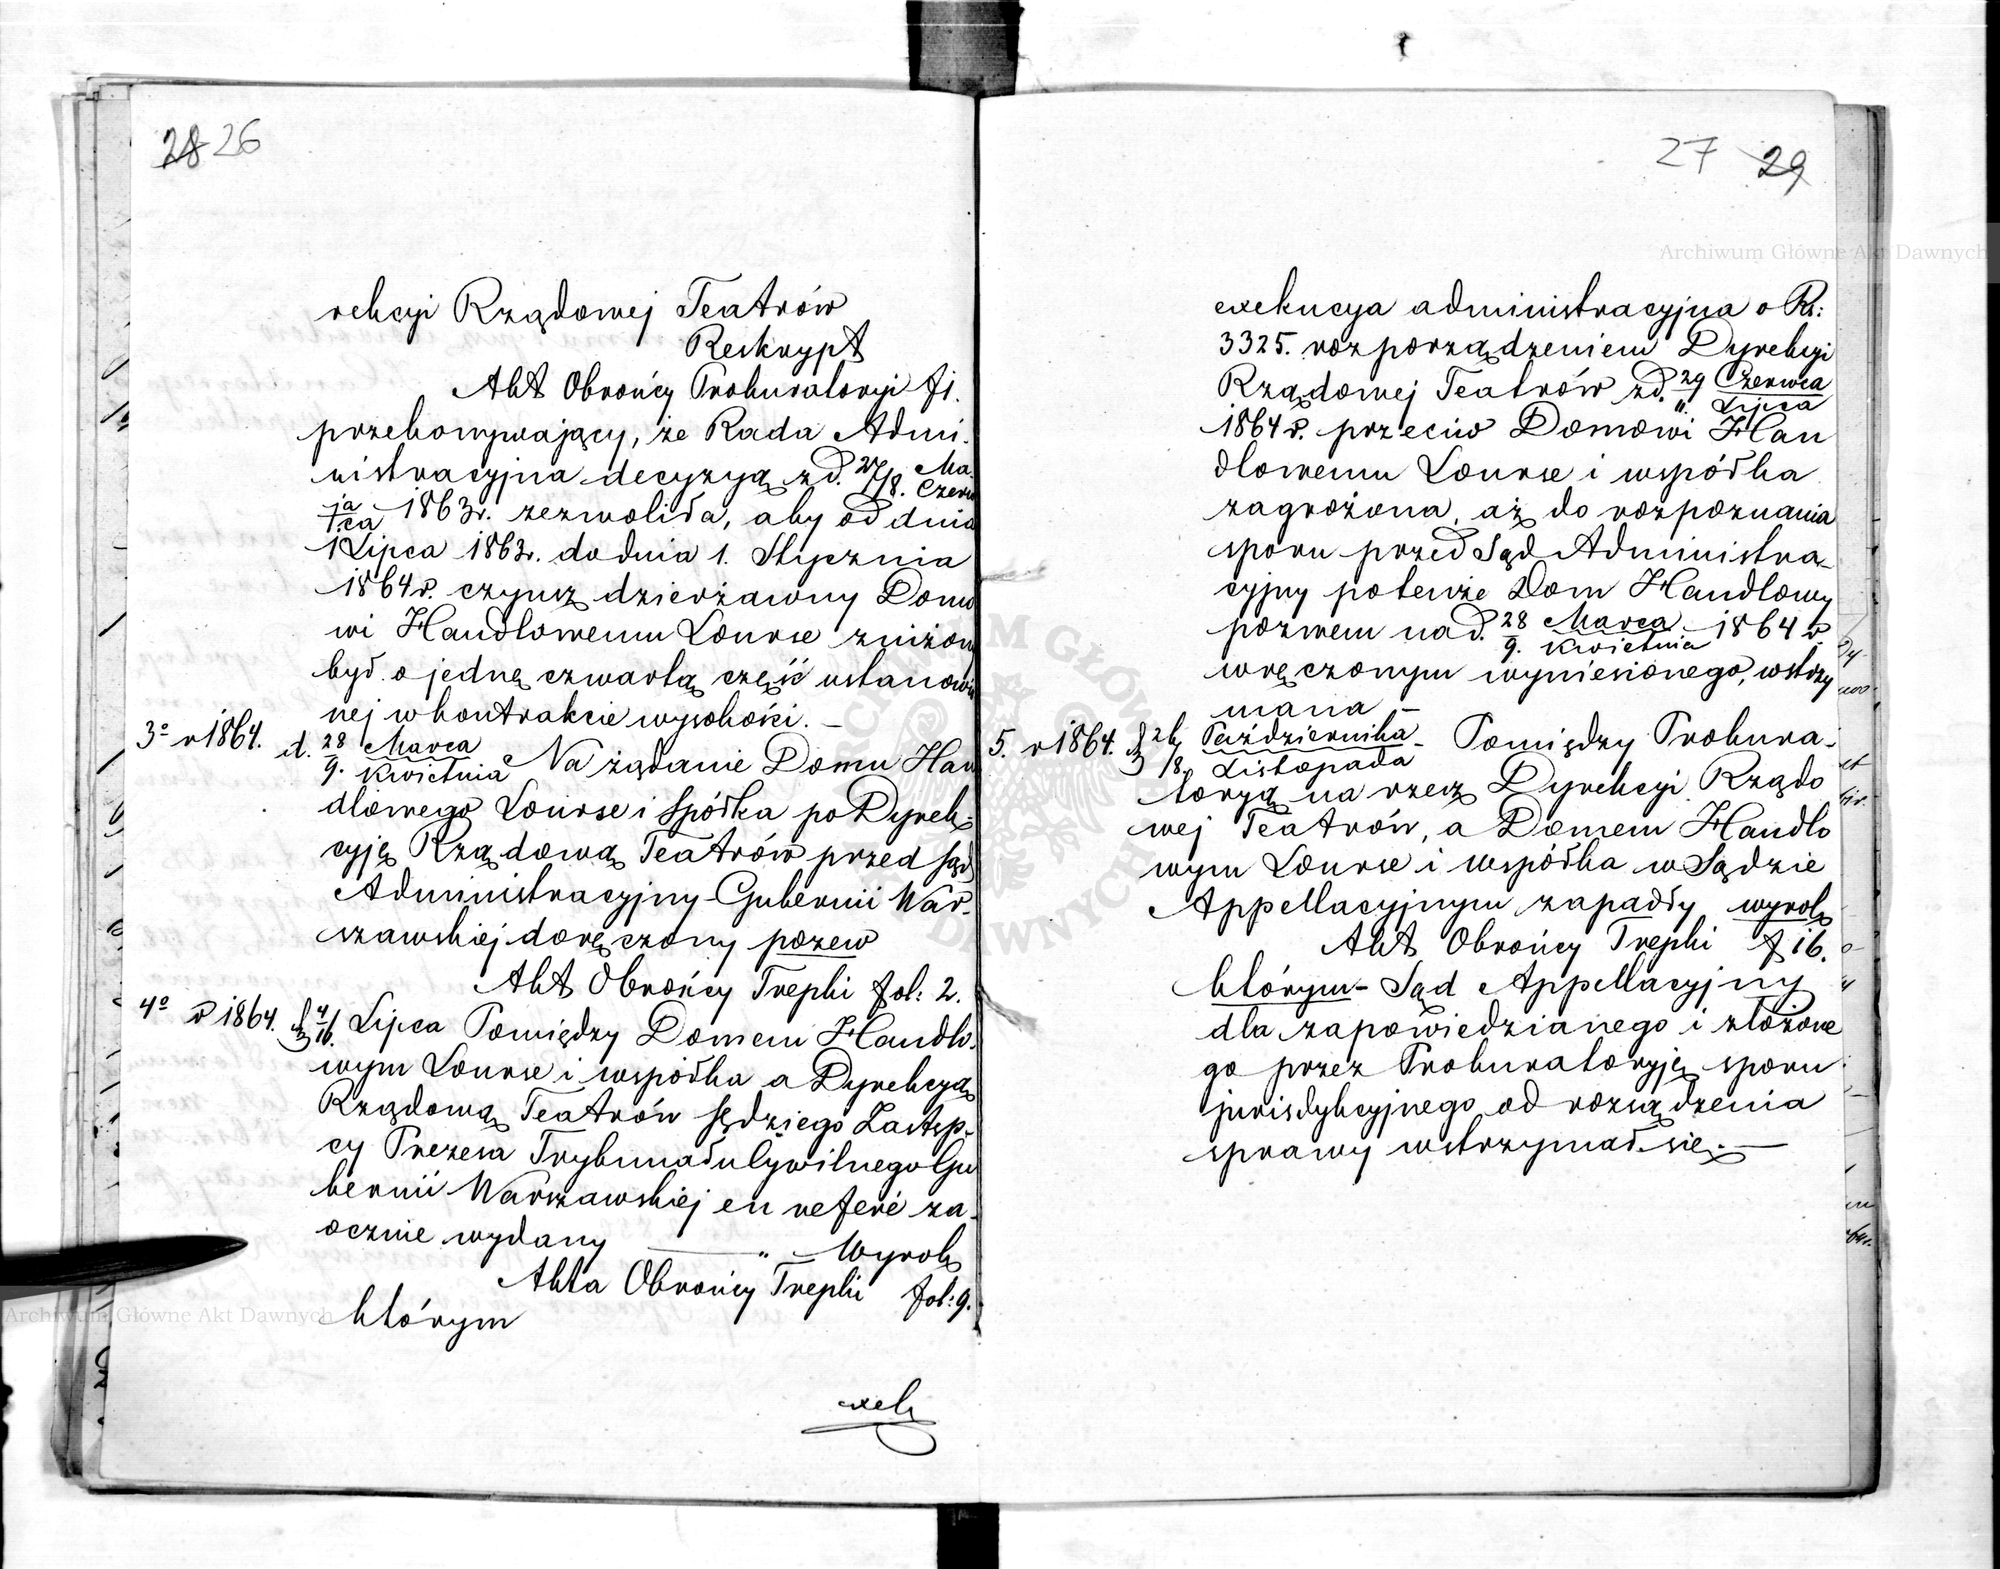 28 26
rekcyi Rządowej Teatrów
Reskrypt
Akt Obrońcy Prokuratoryi f1.
przekonywający, że Rada Admi-
nistracyjna decyzyą z d. 27/8. Ma-
ja 1863r. zezwoliła, aby od dnia
1 Lipca 1863r. do dnia 1. Stycznia
1864 r. czynsz dzierżawny Domo
wi Handlowemu Lourse zniżon
był o jednę czwartą część ustanowio
nej w kontrakcie wysokości. —
3o r 1864. d. 28 Marca
9. Kwietnia Na żądanie Domu Han
dlowego Lourse i Spółka po Dyrek-
cyję Rządową Teatrów przed Sąd
Administracyjny Gubernii War-
szawskiej doręczony pozew
Akt Obrońcy Trepki fol: 2.
4o r 1864. d 4/16. Lipca Pomiędzy Domem Handlo-
wym Lourse i wspólka a Dyrekcyą
Rządową Teatrów Sędziego Zastęp-
cy Prezesa Trybunału Cywilnego Gu
bernii Warszawskiej en referé za-
ocznie wydany — " — Wyrok
Akta Obrońcy Trepki fol: 9.
którym
exek
27 29
exekucya administracyjna o Rs:
3325. rozporządzeniem Dyrekcyi
Rządowej Teatrów z d. 29 Czerwca
11. Lipca
1864 r. przeciw Domowi Han
dlowemu Lourse i wspólka
zagrożona, aż do rozpoznania
sporu przed Sąd Administra-
cyjny potenże Dom Handlowy
pozwem na d. 28 Marca 1864 r
9. Kwietnia
wręczonym wyniesionego, wstrzy
mana —
5. r 1864. d 26 Października - Pomiędzy Prokura-
z 18. Listopada
toryą na rzecz Dyrekcyi Rządo
wej Teatrów, a Domem Handlo
wym Lourse i wspólka w Sądzie
Appellacyjnym zapadły wyrok
Akt Obrońcy Trepki f 16.
którym - Sąd Appellacyjny
dla zapowiedzianego i złożone
go przez Prokuratoryję sporu
jurisdykcyjnego od rozsądzenia
sprawy wstrzymał się. —
Archiwum Główne Akt Dawnych
Archiwum Główne Akt Dawnych